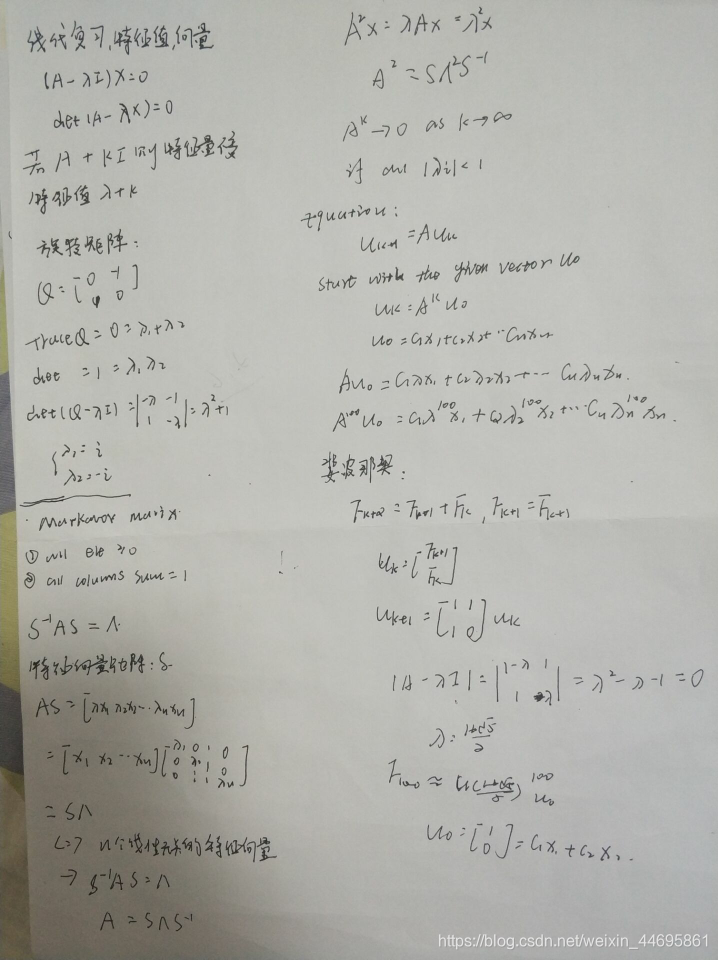 线代复习,特征值,向量
(A-λI)X=0
det(A-λX)=0
若 A+KI 则特征量
特征值 λ+K
旋转矩阵:
Q=[0 -1
0]
Trace Q=0=λ₁+λ₂
det =1=λ₁λ₂
det(Q-λI)=|-λ -1
1 -λ|=λ²+1
{λ₁=i
λ₂=-i
① ≥0
② all columns sum=1
S⁻¹AS=Λ
特征向量矩阵:S
AS=[λx₁ λ₂x₂…λₙxₙ]
=[x₁ x₂…xₙ]
=SΛ
<=> n个线性无关的特征向量
→ S⁻¹AS=Λ
A=SΛS⁻¹
A²x=λAx=λ²x
A²=SΛ²S⁻¹
Aᴷ→0 as k→∞
if |λi|<1
Equation:
uₖ₊₁=Auₖ
start with the given vector u₀
uₖ=Aᴷu₀
u₀=c₁x₁+c₂x₂+…cₙxₙ
Au₀=c₁λx₁+c₂λ₂x₂+…cₙλₙxₙ.
A¹⁰⁰u₀=c₁λ¹⁰⁰x₁+c₂λ₂¹⁰⁰x₂+…cₙλₙ¹⁰⁰xₙ.
斐波那契:
Fₖ₊₂=Fₖ₊₁+Fₖ, Fₖ₊₁=Fₖ₊₁
uₖ=[Fₖ₊₁
Fₖ]
uₖ₊₁=[1 1
1 0]uₖ
|A-λI|=|1-λ 1
1 -λ|=λ²-λ-1=0
u₀=[1
0]=c₁x₁+c₂x₂.
https://blog.csdn.net/weixin_44695861